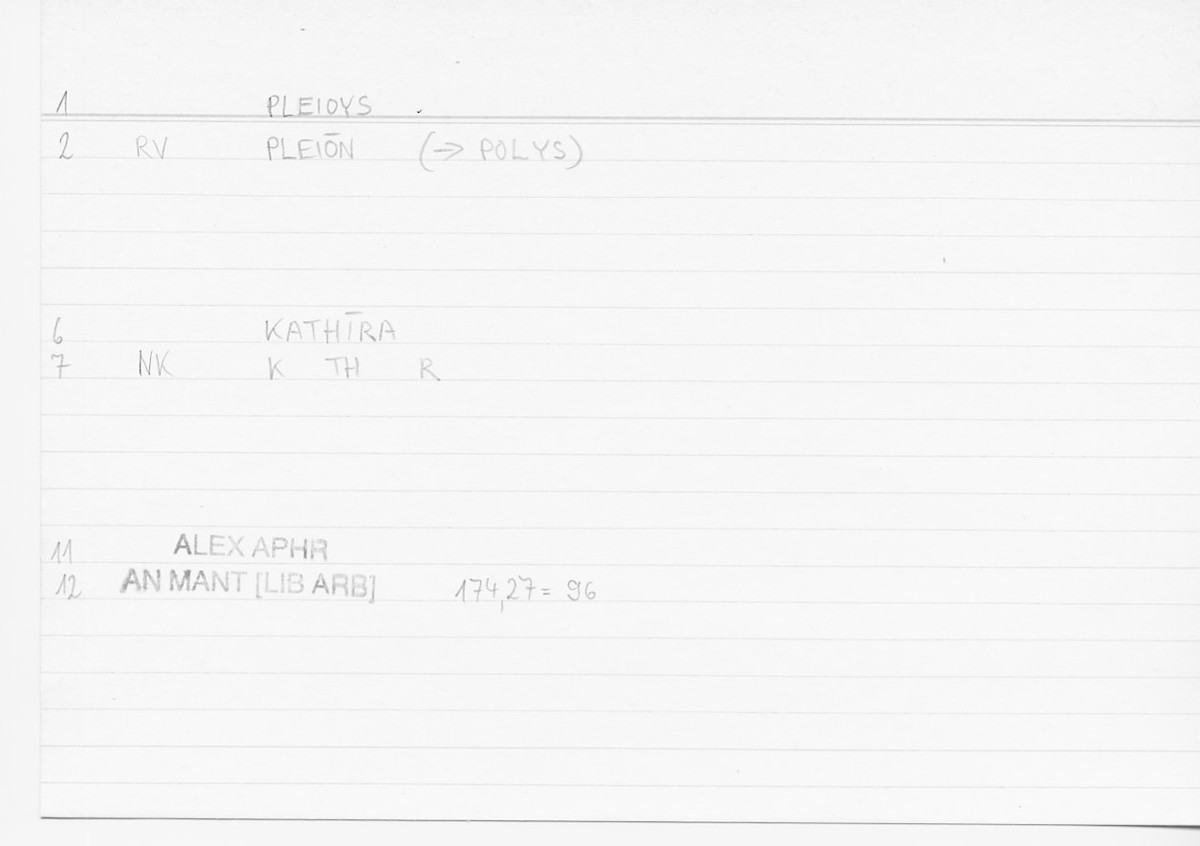 1 PLEIOYS
2 RV PLEIŌN (→ POLYS)
6 KATHĪRA
7 NK K TH R
11 ALEX APHR
12 AN MANT [LIB ARB] 174,27 = 96